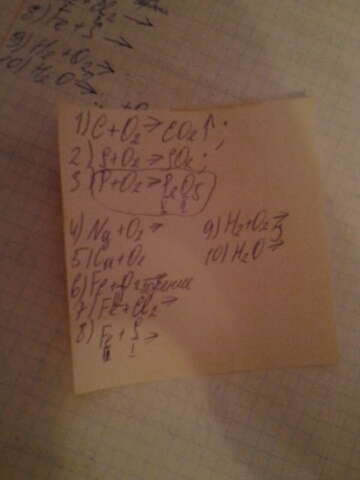 8) Fe + S →
9) H₂ + O₂ →
10) H₂O →
1) C + O₂ → CO₂↑;
2) S + O₂ → SO₂;
3) P + O₂ → P₂O₅
4) Na + O₂ →
5) Ca + O₂
6) Fe + O₂
7) Fe + Cl₂ →
8) Fe + S →
9) H₂ + O₂ →
10) H₂O →